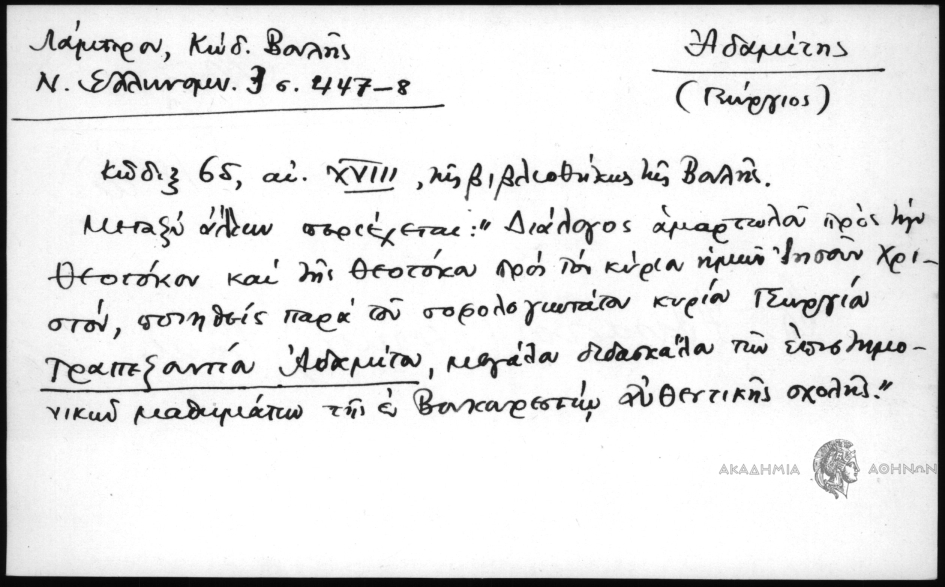 Λάμπρου, Κώδ. Βουλῆς
Ν. Ἑλληνομν. 3 σ. 447-8
Ἀδαμίτης
(Γεώργιος)
Κῶδιξ 65, αἰ. XVIII, τῆς βιβλιοθήκης τῆς Βουλῆς.
Μεταξὺ ἄλλων περιέχεται: "Διάλογος ἁμαρτωλοῦ πρὸς τὴν
Θεοτόκον καὶ τῆς Θεοτόκου πρὸς τὸν κύριον ἡμῶν Ἰησοῦν Χρι-
στόν, ποιηθεὶς παρὰ τοῦ σοφολογιωτάτου κυρίου Γεωργίου
Τραπεζουντίου Ἀδαμίτου, μεγάλου διδασκάλου τῶν ἐπιστημο-
νικῶν μαθημάτων τῆς ἐν Βουκουρεστίῳ αὐθεντικῆς σχολῆς."
ΑΚΑΔΗΜΙΑ ΑΘΗΝΩΝ